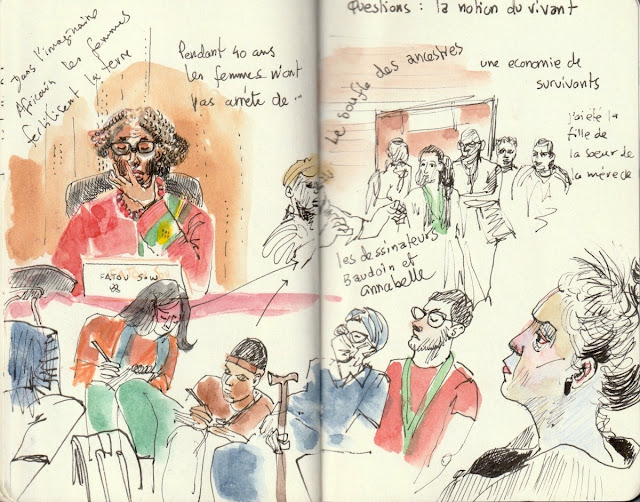 Dans l'imaginaire
Africain les femmes
fertilisent la terre
Pendant 40 ans
les femmes n'ont
pas arrêté de...
FATOU SOW
Questions : la notion du vivant
Le souffle des ancestres
une economie de
survivants
j'ai été la
fille de
la soeur de
la mère de
les dessinateurs
Baudoin et
annabelle